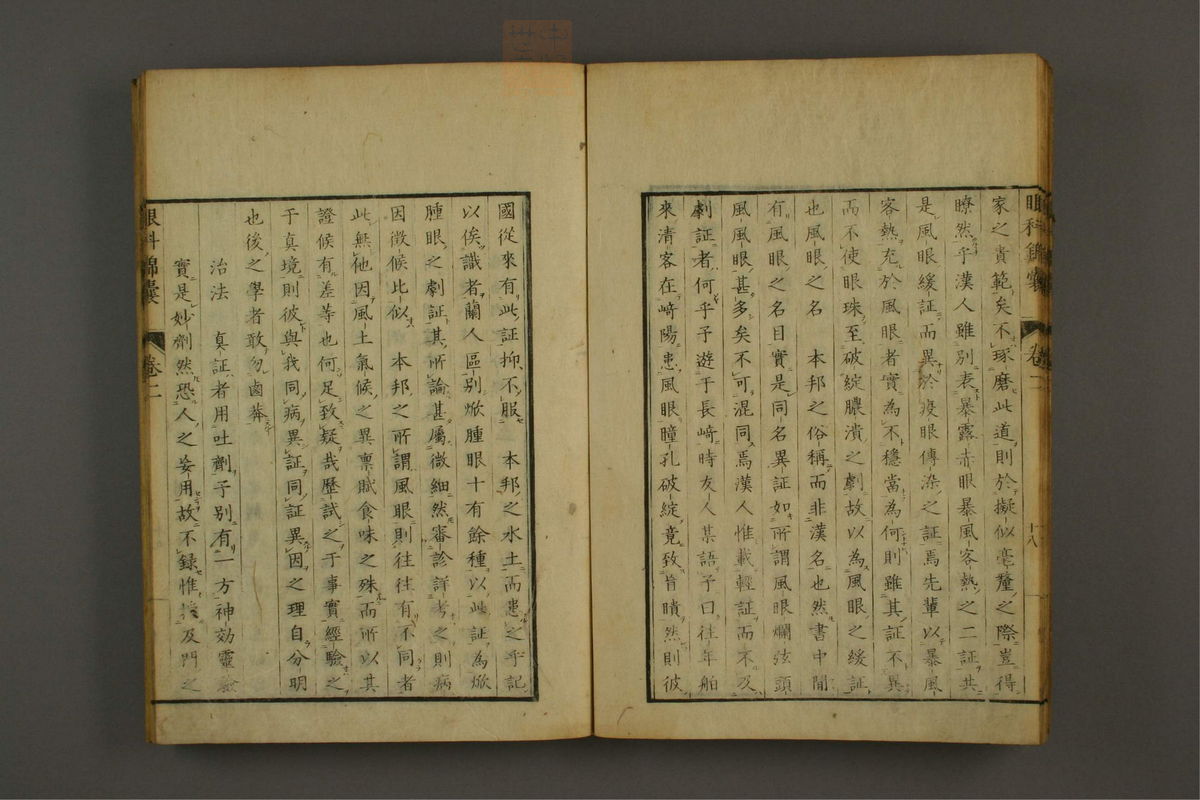 眼科錦囊 卷二 十八
家之貴範矣不琢磨此道則於擬似毫釐之際豈得
瞭然乎漢人雖別表暴露赤眼暴風客熱之二証共
是風眼緩証而異於疫眼傳染之証焉先輩以暴風
客熱充於風眼者實為不穩當為何則雖其証不異
而不使眼珠至破綻膿潰之劇故以為風眼之緩証
也風眼之名 本邦之俗稱而非漢名也然書中間
有風眼之名目實是同名異証如所謂風眼爛弦頭
風風眼甚多矣不可混同焉漢人惟載輕証而不及
劇証者何乎予遊于長崎時友人某語予曰往年舶
來清客在崎陽患風眼瞳孔破綻竟致盲瞆然則彼
國從來有此証抑不服 本邦之水土而患之乎記
以俟識者蘭人區別焮腫眼十有餘種以此証為焮
腫眼之劇証其所論甚屬微細然審診詳考之則病
因徵候比似 本邦之所謂風眼則往往有不同者
此無他因風土氣候之異稟賦食味之殊而所以其
證候有差等也何足致疑哉歷試之于事實經驗之
于真境則彼與我同病異証同証異因之理自分明
也後之學者敢勿鹵莽
治法 真証者用吐劑予別有一方神効靈驗
實是妙劑然恐人之妄用故不錄惟及門之
眼科錦囊 卷二